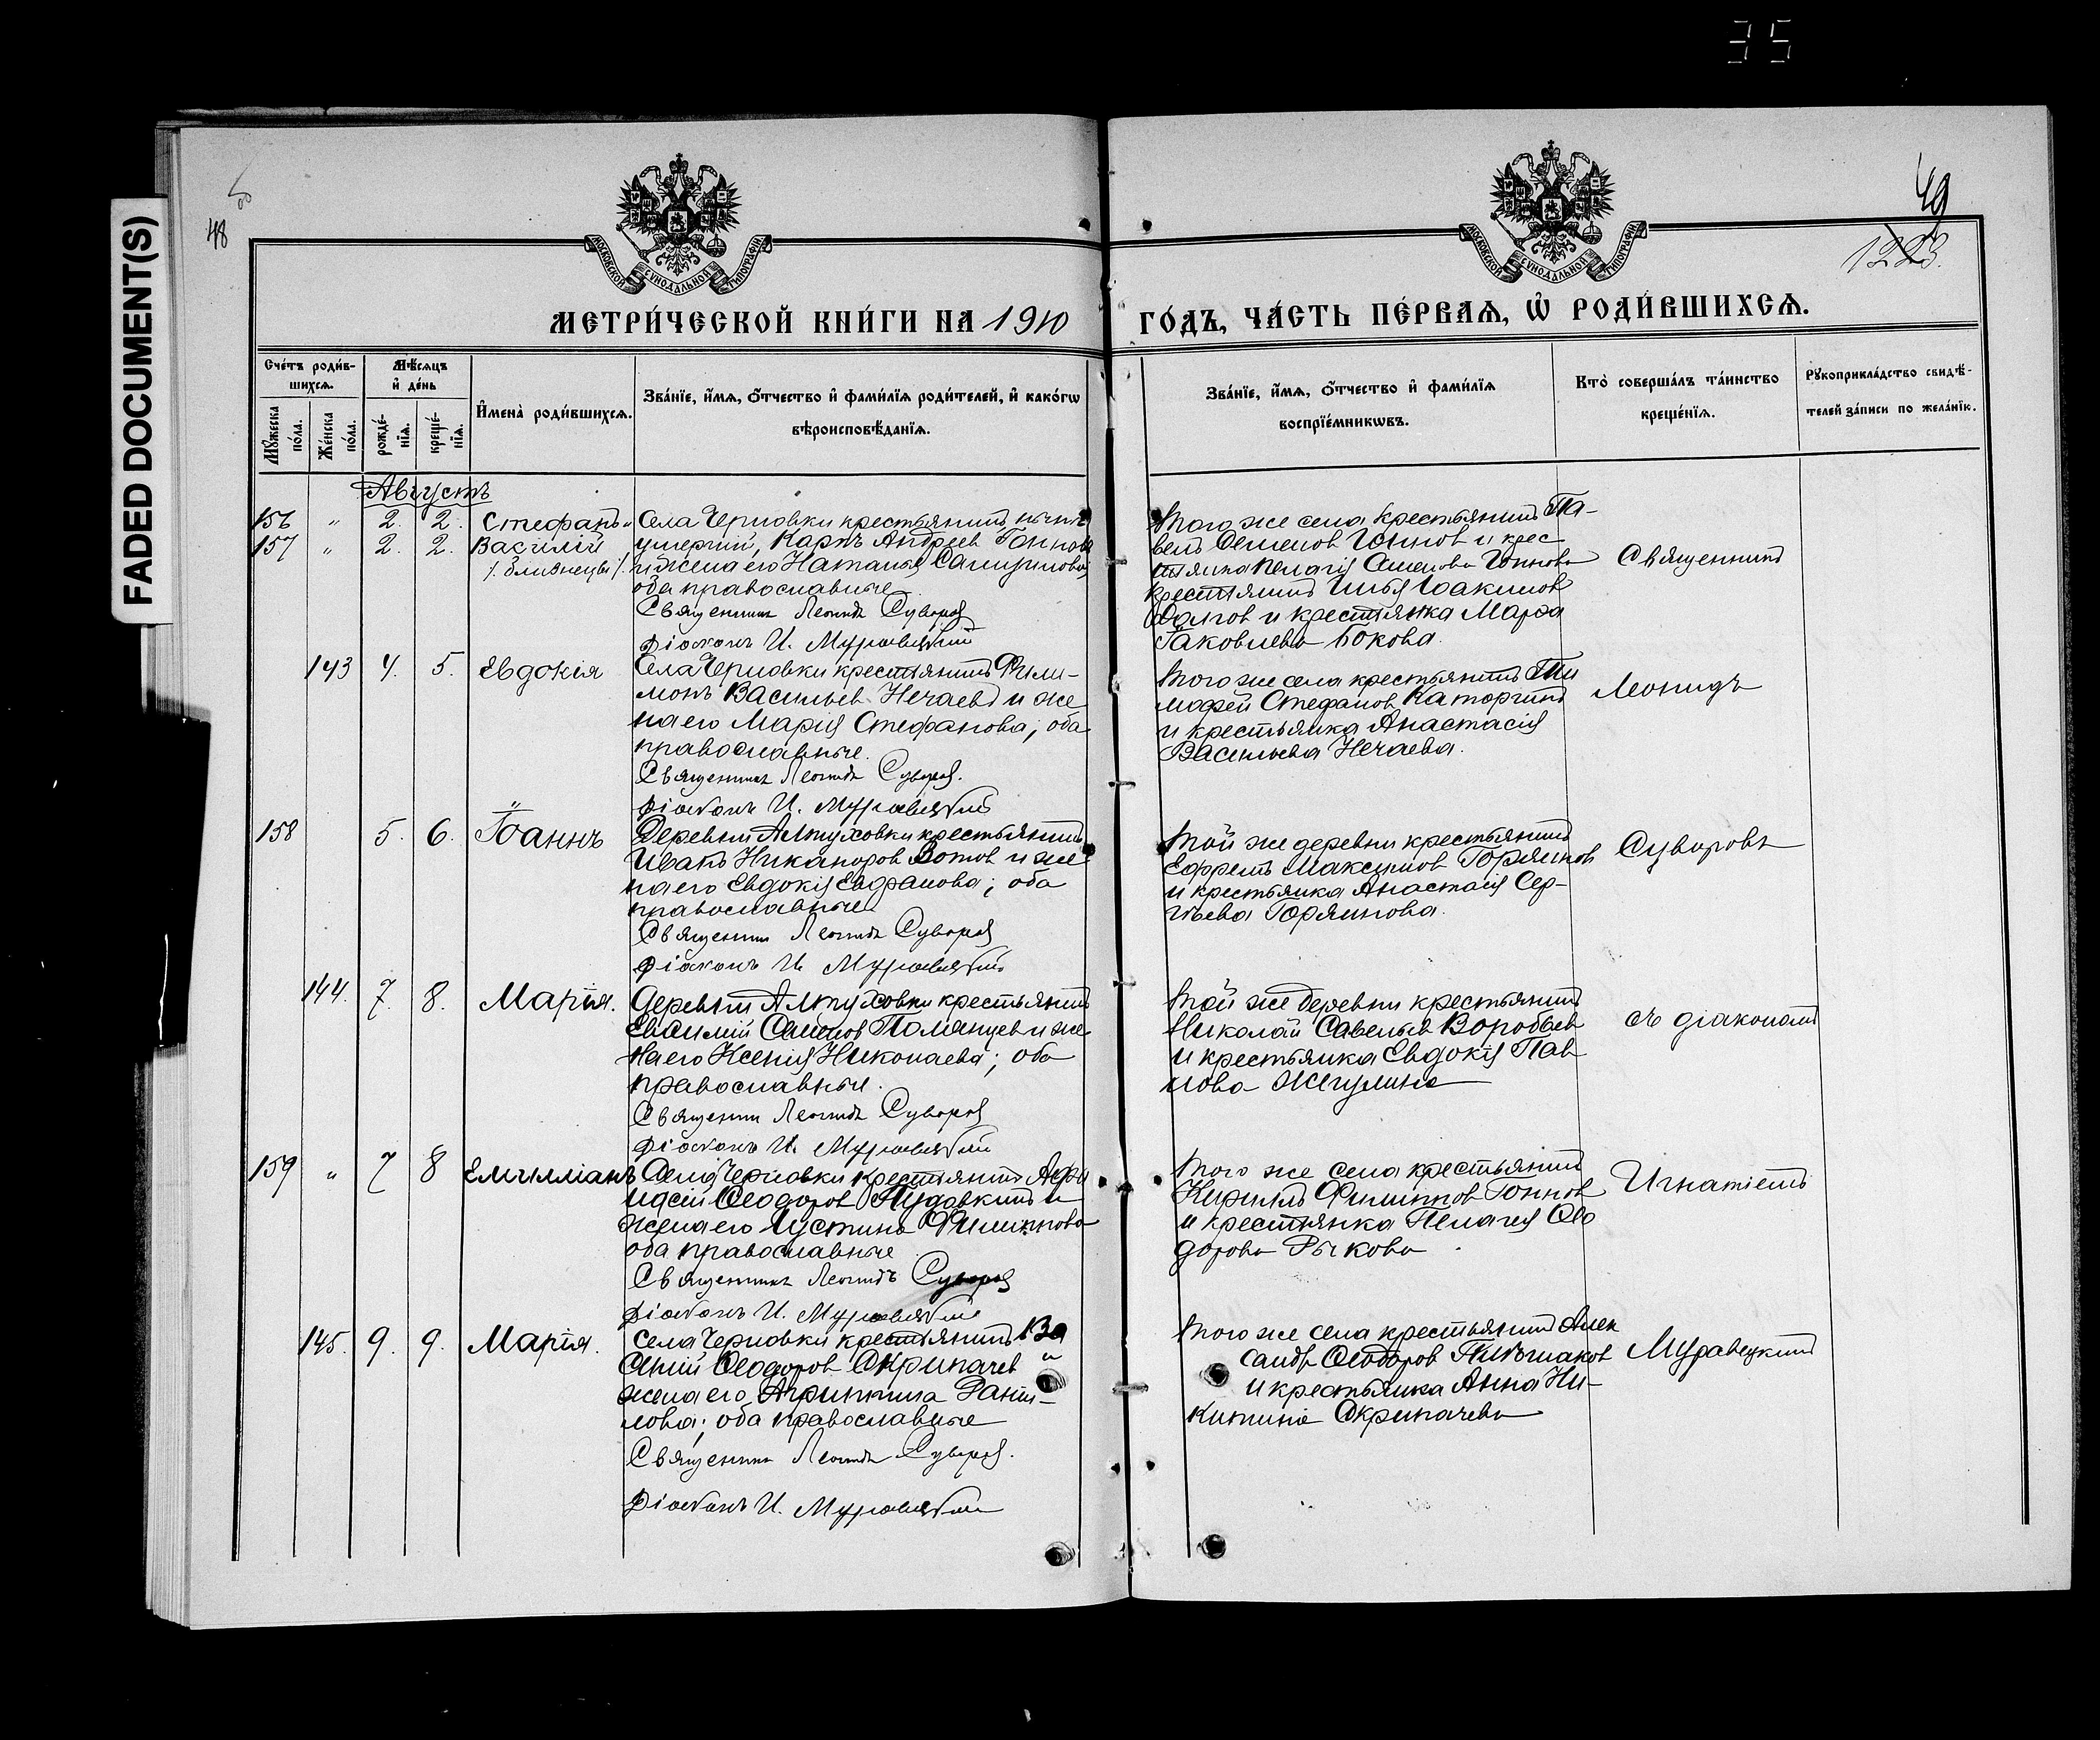 35
FADED DOCUMENT(S)
48
49
1223.
МОСКОВСКОЙ СѴНОДАЛЬНОЙ ТИПОГРАФІИ
МОСКОВСКОЙ СѴНОДАЛЬНОЙ ТИПОГРАФІИ
МЕТРИ́ЧЕСКОЙ КНИ́ГИ НА 1910 ГО́ДЪ, ЧА́СТЬ ПЕ́РВАѦ, Ѡ҆ РОДИ́ВШИХСѦ.
Сче́тъ роди́в-
шихсѧ.
Мꙋ́жеска по́ла.
Же́нска по́ла.
Мѣ́сѧцъ
и҆ де́нь
рожде́-
нїѧ.
креще́-
нїѧ.
И҆мена̀ роди́вшихсѧ.
Зва́нїе, и҆́мѧ, ѻ҆́тчество и҆ фами́лїѧ роди́телей, и҆ како́гѡ
вѣроисповѣ́данїѧ.
Зва́нїе, и҆́мѧ, ѻ҆́тчество и҆ фами́лїѧ
воспрїе́мникѡвъ.
Кто̀ соверша́лъ та́инство
креще́нїѧ.
Рꙋкоприкла́дство свидѣ́-
телей за́писи по жела́нїю.
Августъ
156 " 2. 2. Стефанъ и
157 " 2. 2. Василій
/. близнецы /.
Села Черновки крестьянинъ нынѣ
умерший, Карпъ Андреев Гоннов
и жена его Наталья
оба православные
Священникъ Леонидъ Суворов
Діаконъ И. Муравецкий
Того же села крестьянинъ Па-
велъ Семенов Гоннов и крес
тьянка Пелагія Семенова Гоннова
крестьянинъ Илья Іоакимов
Долгов и крестьянка Марфа
Іаковлева Бокова.
Священникъ
143 4. 5. Евдокія
Села Черновки крестьянинъ Фили-
монъ Васильев Нечаевъ и же
на его Марія Стефанова; оба
православные.
Священникъ Леонидъ Суворов.
Діаконъ И. Муравецкий
Того же села крестьянинъ Ти
мофей Стефанов Каторгинъ
и крестьянка Анастасія
Васильева Нечаева.
Леонидъ
158 5. 6. Іоаннъ
Деревни Алтуховки крестьянинъ
Иванъ Никаноров Зотов и же
на его Евдокія; оба
православные
Священник Леонидъ Суворов
Діаконъ И. Муравецкий
Той же деревни крестьянинъ
Ефремъ Максимов Горяинов
и крестьянка Анастасія Сер-
гѣева Горяинова.
Суворовъ
144. 7. 8. Марія.
Деревни Алтуховки крестьянинъ
Евѳимій и же
на его Ксенія Николаева; оба
православные.
Священник Леонидъ Суворов
Діаконъ И. Муравецкий
Той же деревни крестьянинъ
Николай Савельев Воробьев
и крестьянка Евдокія Пав
лова Жигулина
съ діакономъ
159 " 7 8 Емилліанъ
Села Черновки крестьянинъ Афа
насій Ѳеодоров и
жена его Іустина Филиппова
оба православные
Священникъ Леонидъ Суворов
Діаконъ И. Муравецкий
Того же села крестьянинъ
Кириллъ Филиппов Гоннов
и крестьянка Пелагея Ѳео
дорова Рыкова
Игнатіемъ
145. 9. 9. Марія.
Села Черновки крестьянинъ Ва
силій Ѳеодоров Скрипачев и
жена его Агриппина Данії-
лова; оба православные
Священникъ Леонидъ Суворов.
Діаконъ И. Муравецкий
Того же села крестьянинъ Алек
сандр Ѳеодоров
и крестьянка Анна Ни-
китина Скрипачева
Муравецкимъ